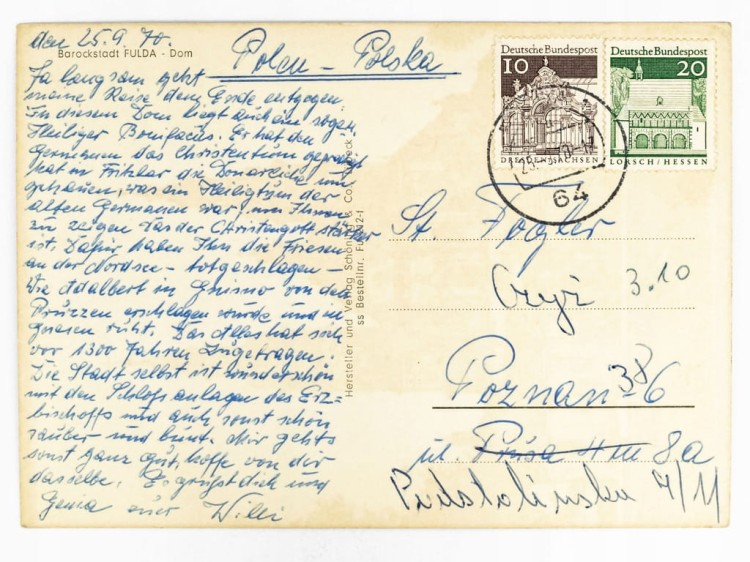 den 25.9.70.
Barockstadt FULDA - Dom
Ja langsam geht
meine Reise dem Ende entgegen.
In diesem Dom liegt auch ein sogen.
Heiliger Bonifacus. Er hat den
Germanen das Christentum gepredigt
hat in Fritzlar die Donareiche um
gehauen, was ein Heiligtum der
alten Germanen war, um Ihnen
zu zeigen das der Christengott stärker
ist. Dafür haben Ihn die Friesen
an der Nordsee - totgeschlagen -
Wie Adalbert in Gnisno von den
Pruzzen erschlagen wurde und in
Gnesen ruht. Das Alles hat sich
vor 1300 Jahren zugetragen.
Die Stadt selbst ist wunderschön
mit den Schloßanlagen des Erz=
bischoffs und auch sonst schön
sauber und bunt. Mir gehts
sonst ganz gut, hoffe von dir
dasselbe. Es grüßt dich und
Genia euer Willi
Hersteller und Verlag Schöning & Co
Bestellnr.
Polen - Polska
Deutsche Bundespost
10
DRESDEN/SACHSEN
Deutsche Bundespost
20
LORSCH/HESSEN
64
St.
Czyż 3.10
Poznań 6
38
ul. Prusa 4 m 8a
7/11